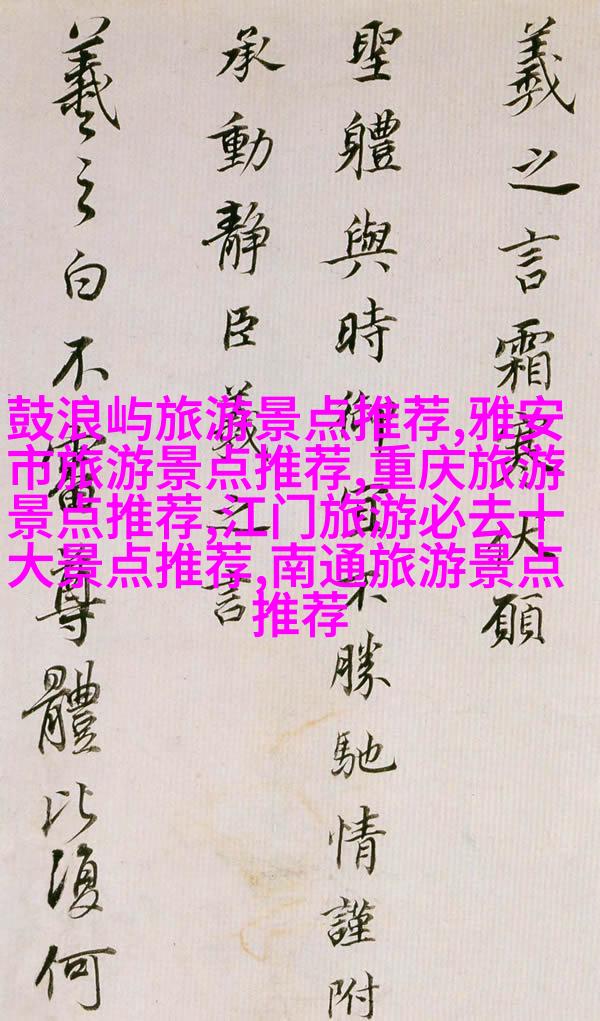 義之言霜寒伏願
聖體與時御宜不勝馳情謹附
承動靜臣羲之言
羲之白不審尊體比復何
鼓浪屿旅游景点推荐,雅安
市旅游景点推荐,重庆旅游
景点推荐,江门旅游必去十
大景点推荐,南通旅游景点
推荐